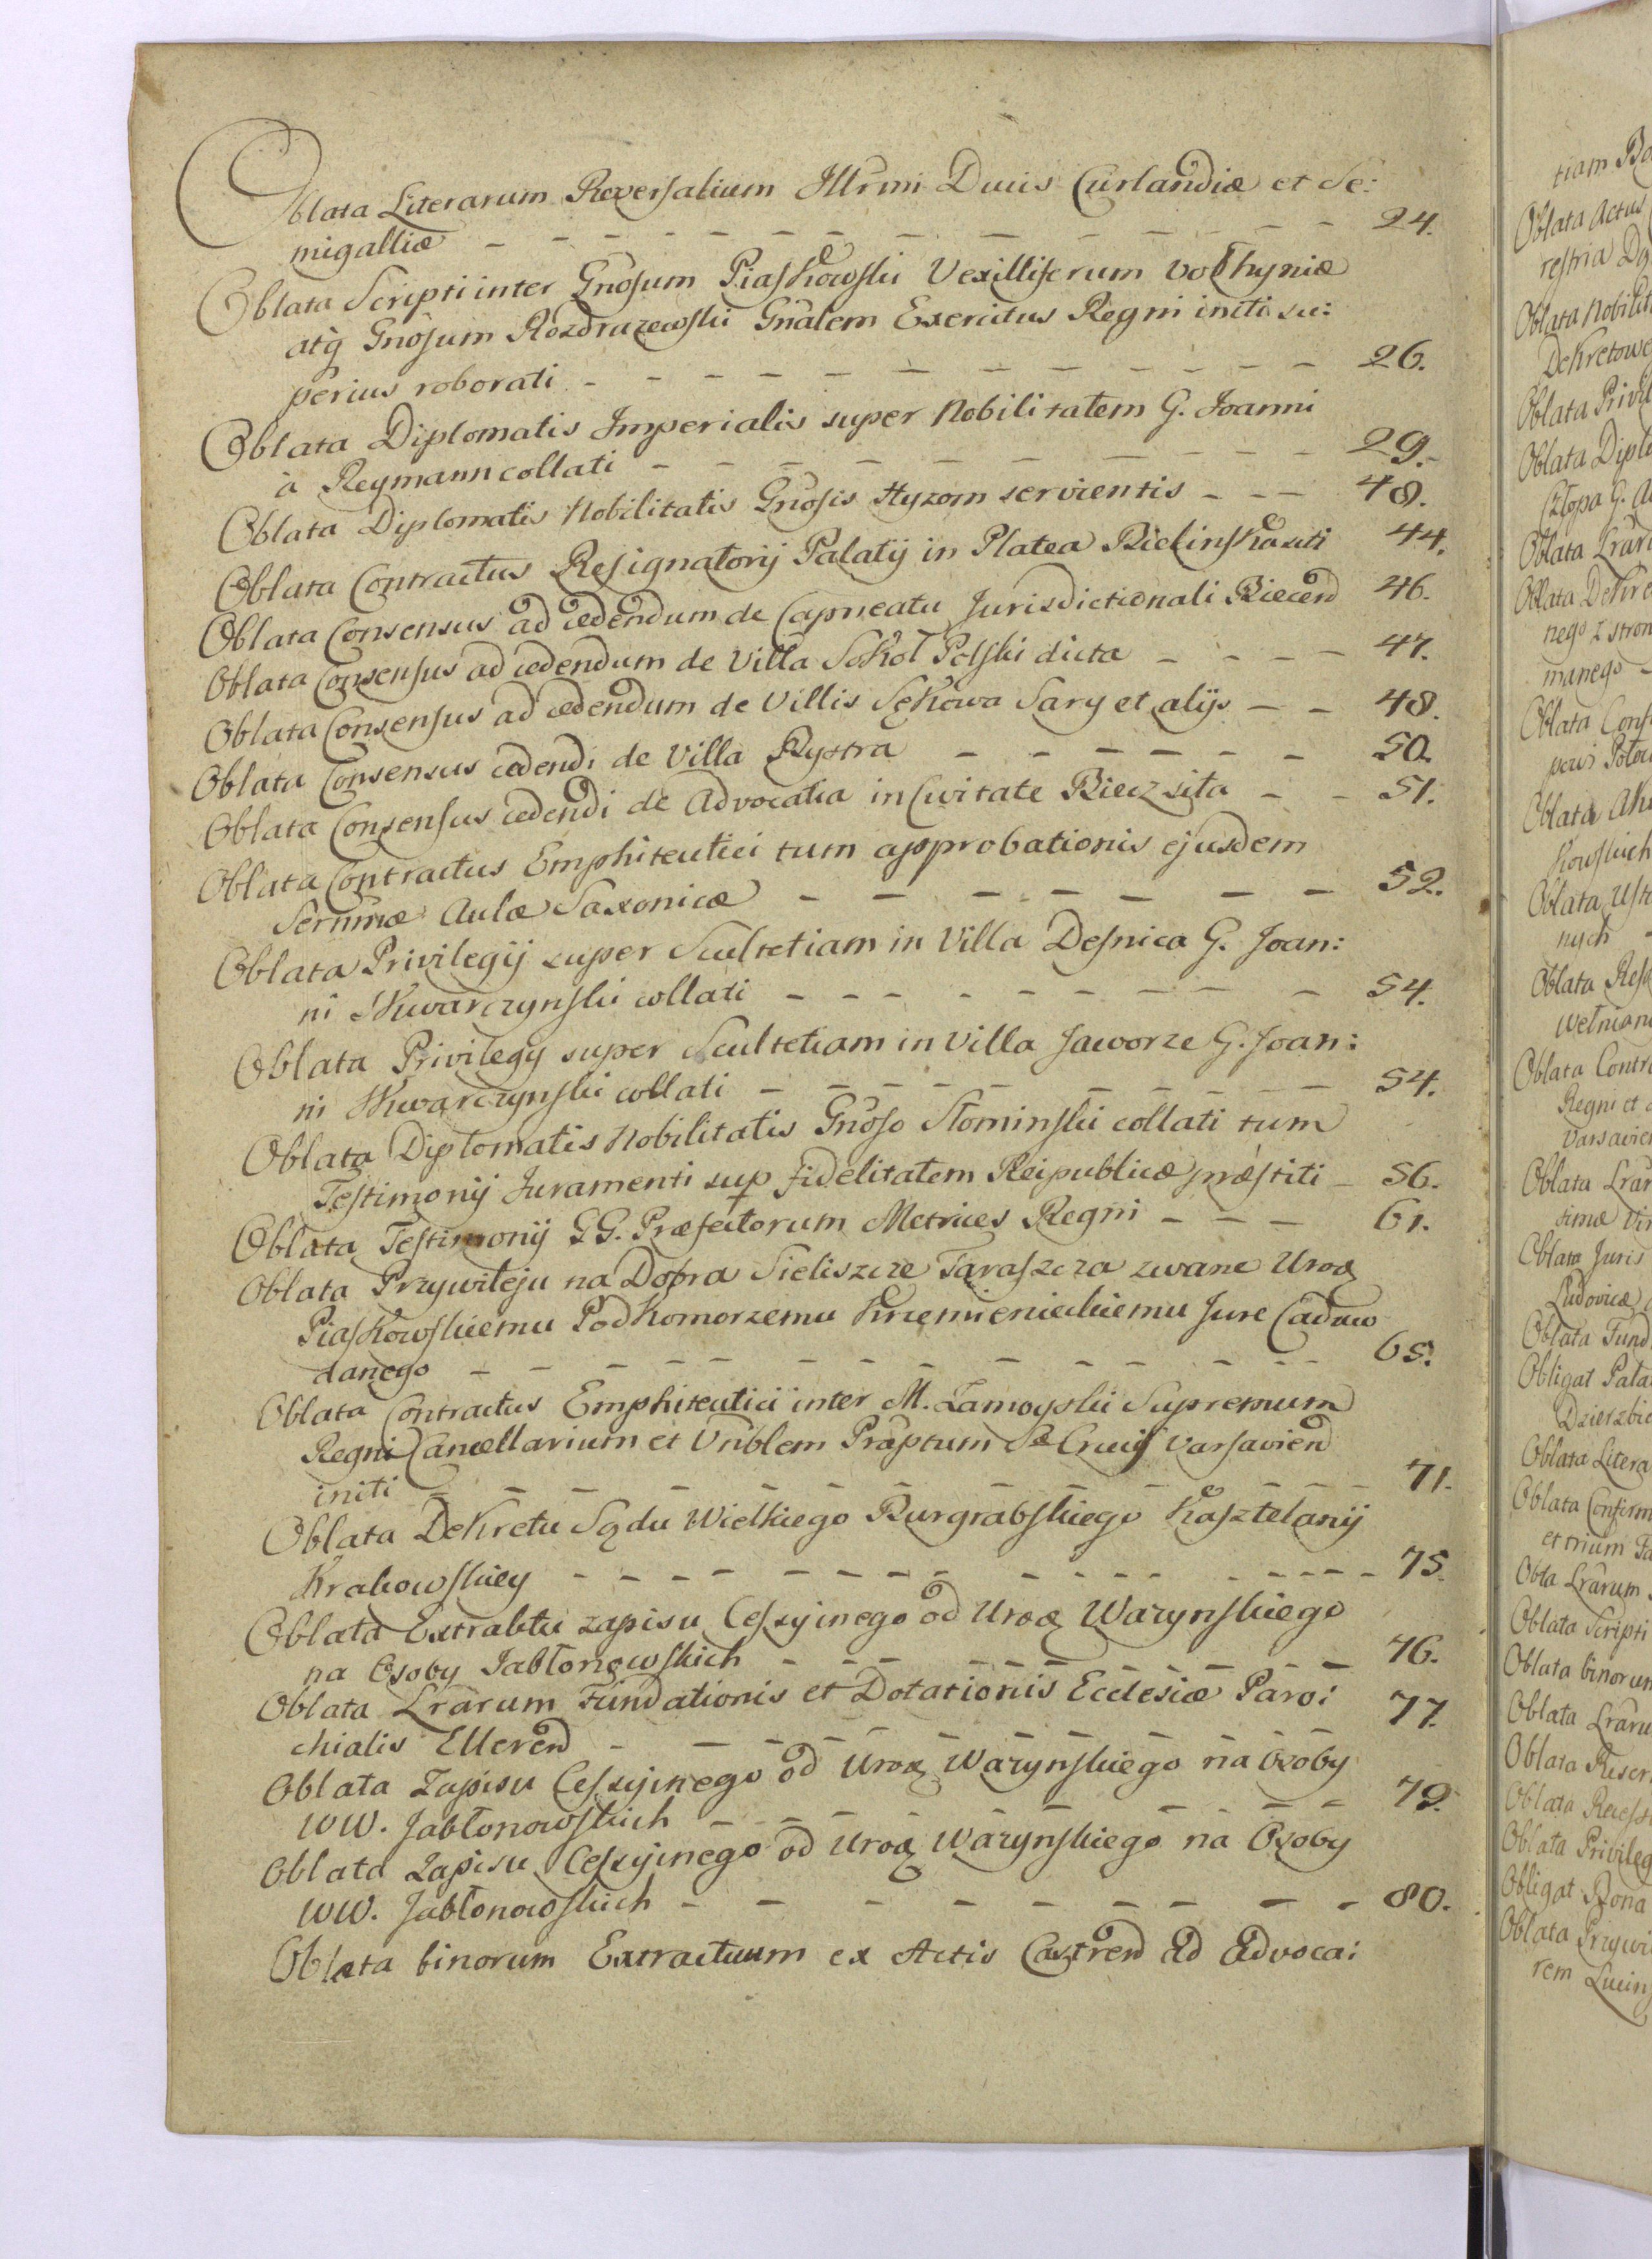 Oblata Literarum Reversalium Illrmi Ducis Curlandiæ et Se:
migalliæ - - - - - - - - - - - - 24.
Oblata Scripti inter Gnosum Piaskowski Vexilliferum Volhyniæ
atq̃ Gnosum Rozdrazewski Gnalem Exercitus Regni initi su:
perius roborati - - - - - - - - - - - 26.
Oblata Diplomatis Imperialis super Nobilitatem G. Joanni
à Reymann collati - - - - - - - - - - 29.
Oblata Diplomatis Nobilitatis Gnosis Hyzom servientis - - - 40.
Oblata Contractus Resignatorij Palatij in Platea Bielinska siti 44.
Oblata Consensus ad cedendum de Capneatu Jurisdictionali Biecen 46.
Oblata Consensus ad cedendum de Villa Sokoł Polski dicta - - - - 47.
Oblata Consensus ad cedendum de Villis Sękowa Sary et alijs - - 48.
Oblata Consensus cedendi de Villa Rystra - - - - - - 50.
Oblata Consensus cedendi de Advocatia in Civitate Biecz sita - - 51.
Oblata Contractus Emphiteutici tum approbationis ejusdem
Sernmæ Aulæ Saxonicæ - - - - - - - 52.
Oblata Privilegij super Scultetiam in Villa Desnica G. Joan:
ni Skwarczynski collati - - - - - - - - - 54.
Oblata Privilegij super Scultetiam in Villa Jaworze G. Joan:
ni Skwarczynski collati - - - - - - - - - 54.
Oblata Diplomatis Nobilitatis Gnoso Słominski collati tum
Testimonij Juramenti sup fidelitatem Reipublicæ præstiti - 56.
Oblata Testimonij GG. Præfectorum Metrices Regni - - - 61.
Oblata Przywileju na Dobra Sieliszcze Taraszcza zwane Uroꝫ
Piaskowskiemu Podkomorzemu Krzemienieckiemu Jure Caduco
danego - - - - - - - - - - - - - 65.
Oblata Contractus Emphiteutici inter M. Zamoyski Supremum
Regni Cancellarium et Vnblem Præptum Sæ Crucis Varsavien
initi - - - - - - - - - - - - 71.
Oblata Dekretu Sądu Wielkiego Burgrabskiego Kasztelanij
Krakowskiey - - - - - - - - - - - - - - 75.
Oblata Extraktu zapisu Cessyinego od Uroꝫ Wazynskiego
na Osoby Jabłonowskich - - - - - - - - - - 76.
Oblata Lrarum Fundationis et Dotationis Ecclesiæ Paro:
chialis Elleren - - - - - - - - - 77.
Oblata Zapisu Cessyinego od Uroꝫ Wazynskiego na Osoby
WW. Jabłonowskich - - - - - - - - - 79.
Oblata Zapisu Cessyinego od Uroꝫ Wazynskiego na Osoby
WW. Jabłonowskich - - - - - - - - - 80.
Oblata binorum Extractuum ex Actis Castren Ad Advoca:
tiam
Oblata Actus
restria
Oblata Nobilit
Dekretowe
Oblata Privil
Oblata Diplo
Oblata Lraru
Oblata Dekre
nego z stron
manego -
Oblata Cons
Oblata
kowskich
Oblata
nych -
Oblata
Oblata Contr
Regni et
Varsavien
Oblata Lrar
Oblata Juris
Ludovicæ
Oblata Fund
Obligat Pala
Oblata Litera
Oblata Confirm
et trium
Obta Lrarum
Oblata Scripti
Oblata binorum
Oblata Lraru
Oblata Reser
Oblata Recess
Oblata Privileg
Obligat Bona
Oblata Przywi
rem